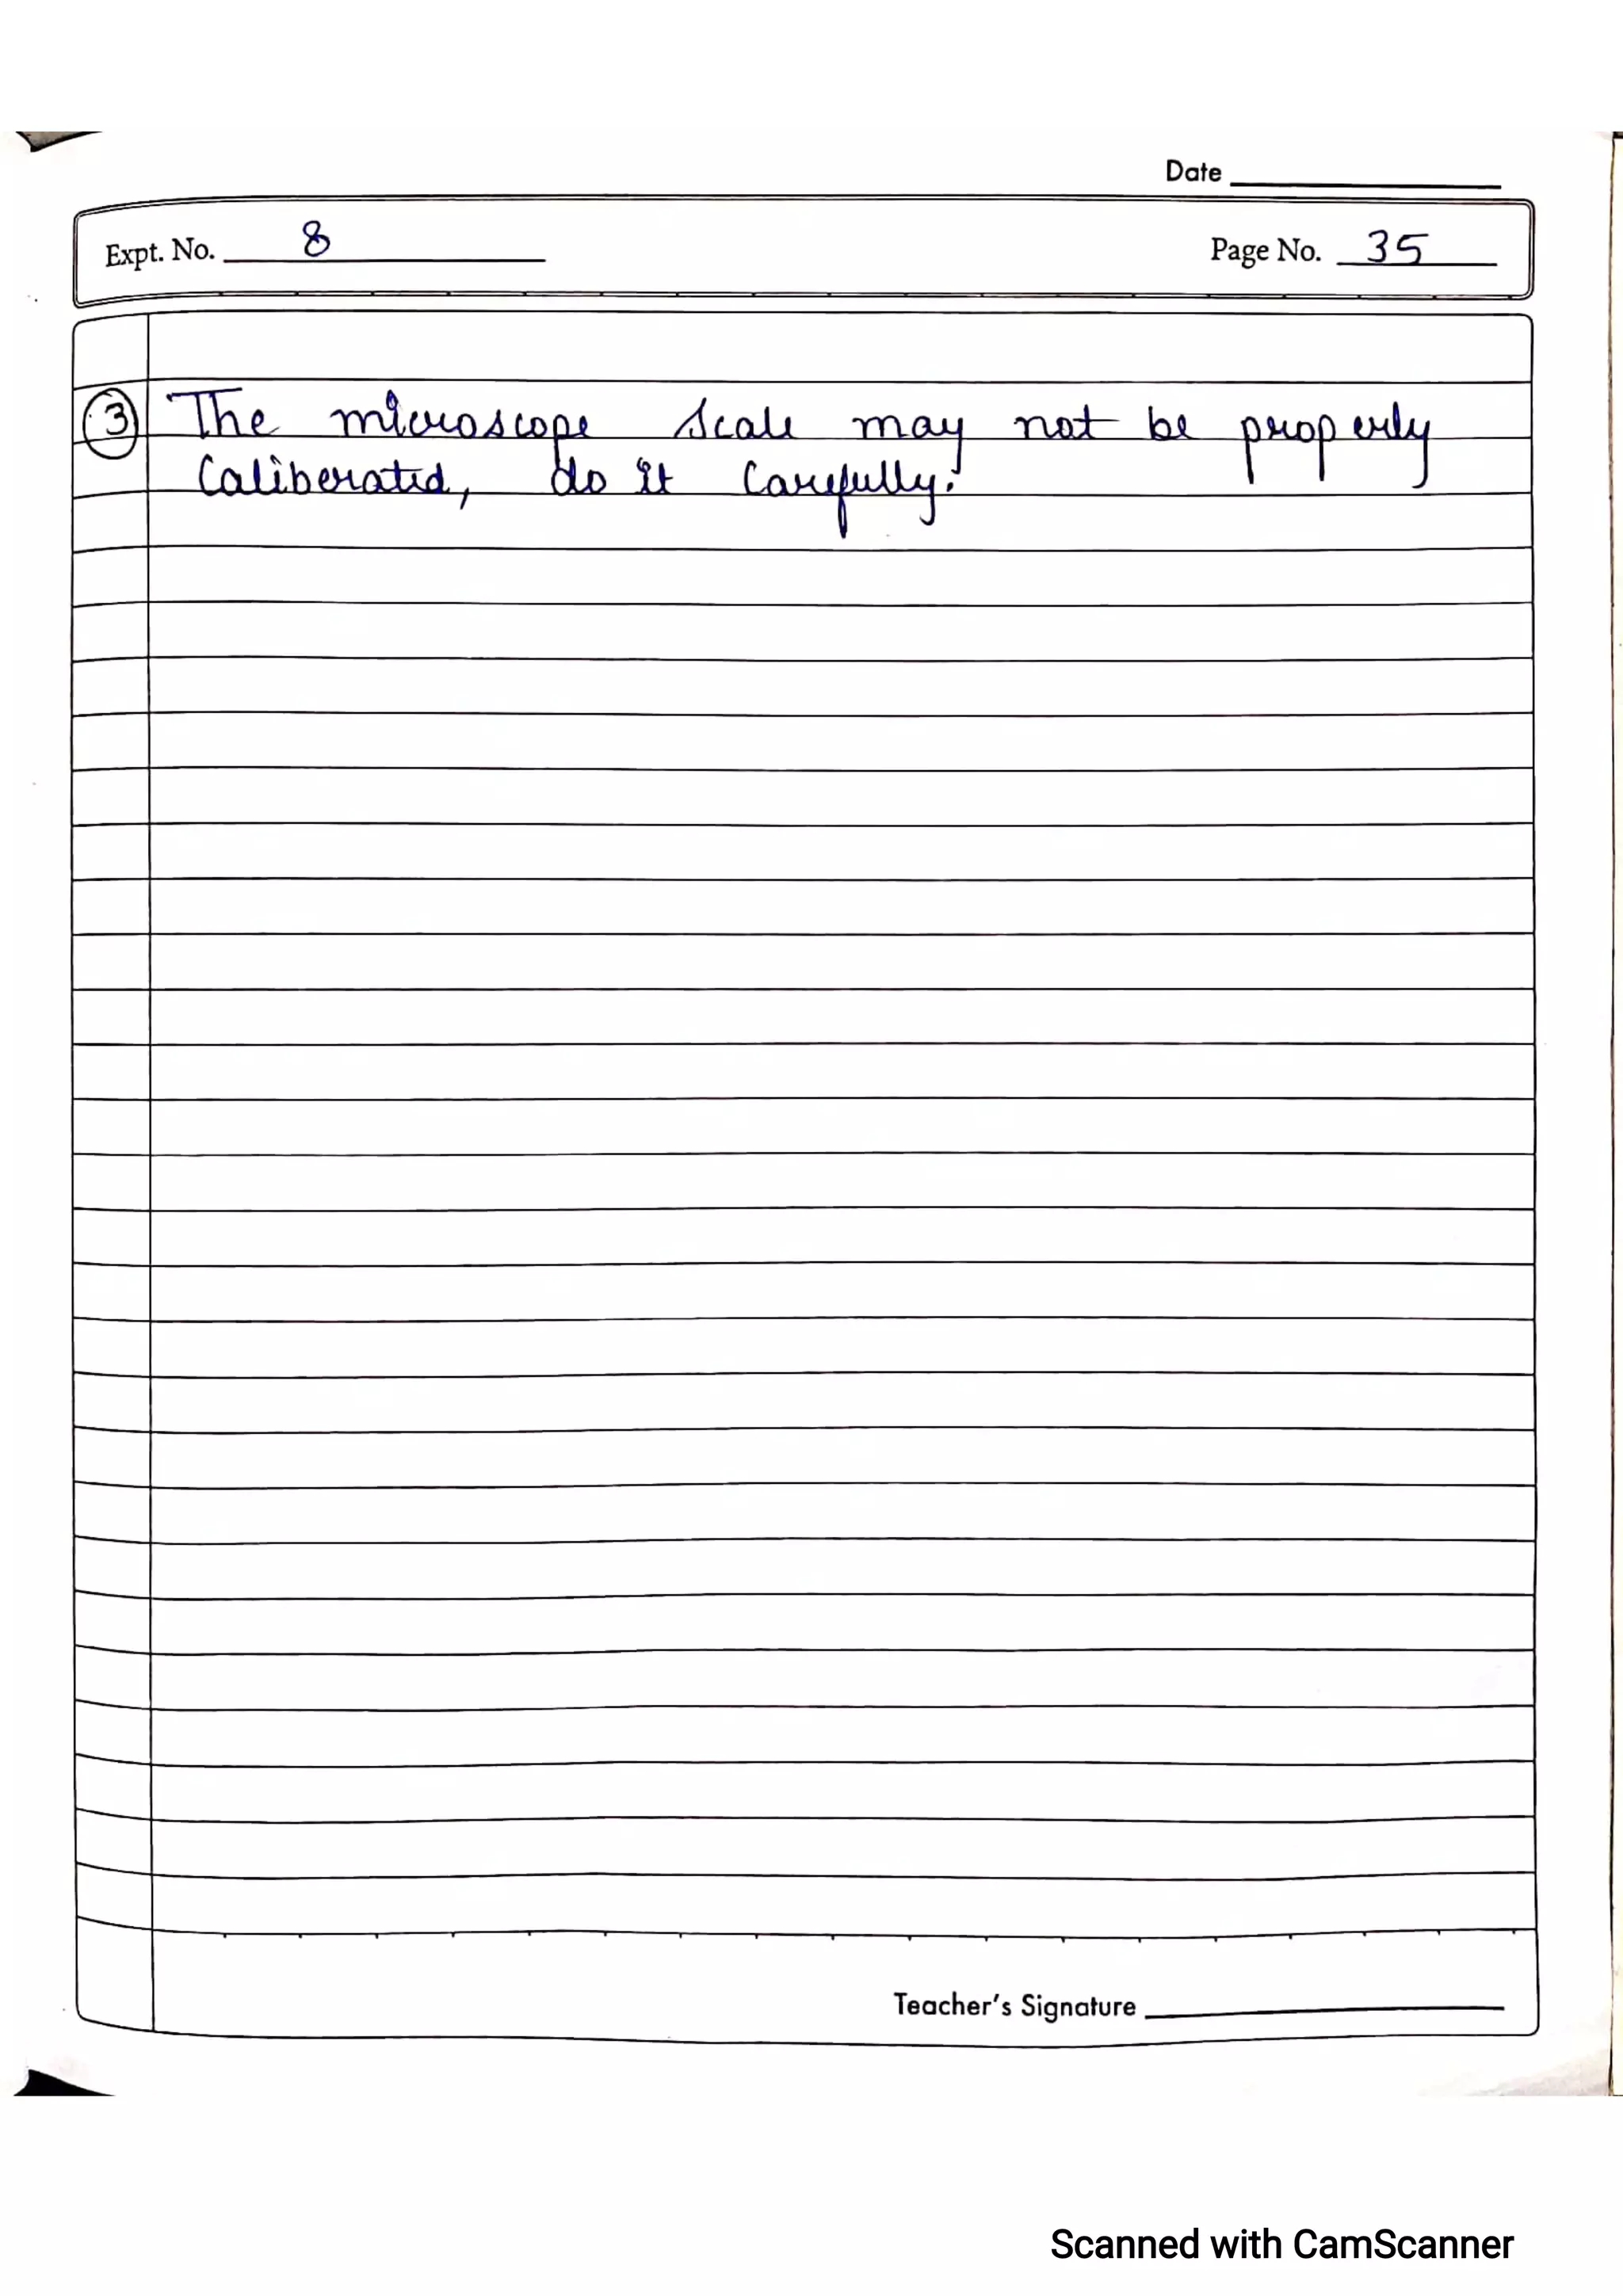 Date
Expt. No. 8
Page No. 35
3 The microscope scale may not be properly
Caliberated, do it Carefully.
Teacher's Signature
Scanned with CamScanner